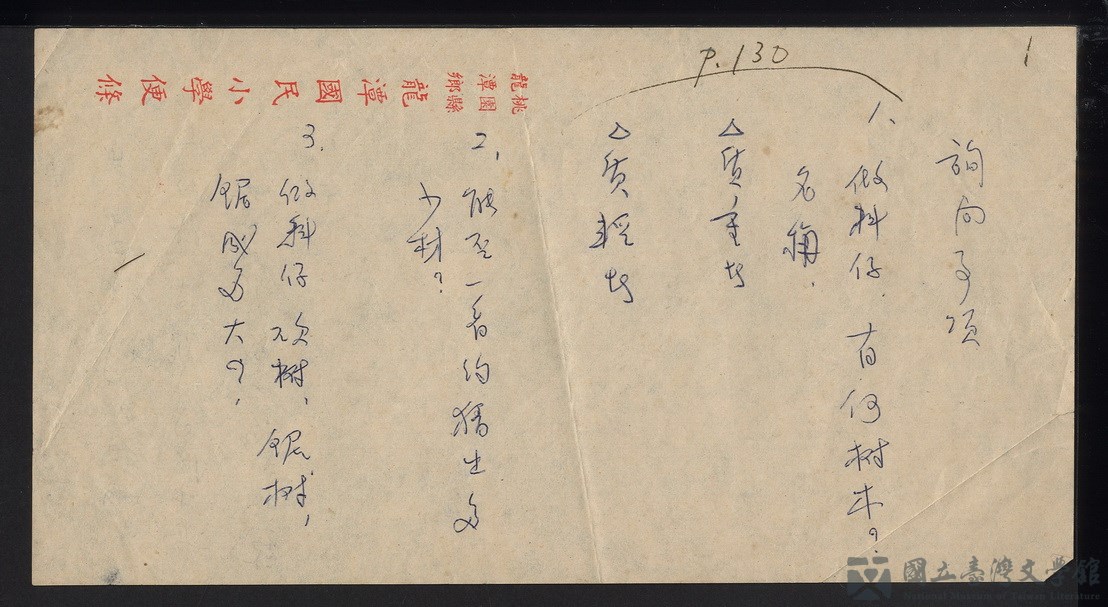 1
p.130
詢问事项
1. 做料仔，有何树木？
名稱．
△质重者
△质輕者
2. 能否一看約猜出多
少材？
3. 做料仔砍树，鋸树，
鋸成多大？
桃園縣
龍潭鄉
龍潭國民小學便條
國立臺灣文學館
National Museum of Taiwan Literature